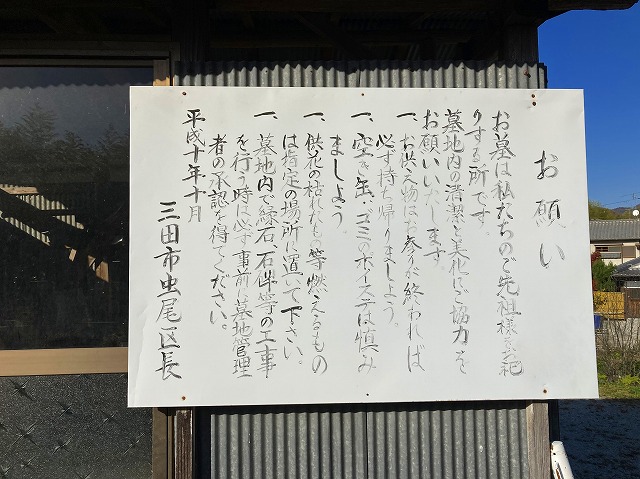 お願い
お墓は私たちのご先祖様をお祀
りする所です。
墓地内の清潔と美化にご協力を
お願いいたします。
一、お供え物はお参りが終われば
必ず持ち帰りましょう。
一、空き缶、ゴミのポイステは慎み
ましょう。
一、供花の枯れたもの等燃えるもの
は指定の場所に置いて下さい。
一、墓地内で縁石、石碑等の工事
を行う時は必ず事前に墓地管理
者の承認を得てください。
平成十年十月
三田市虫尾区長